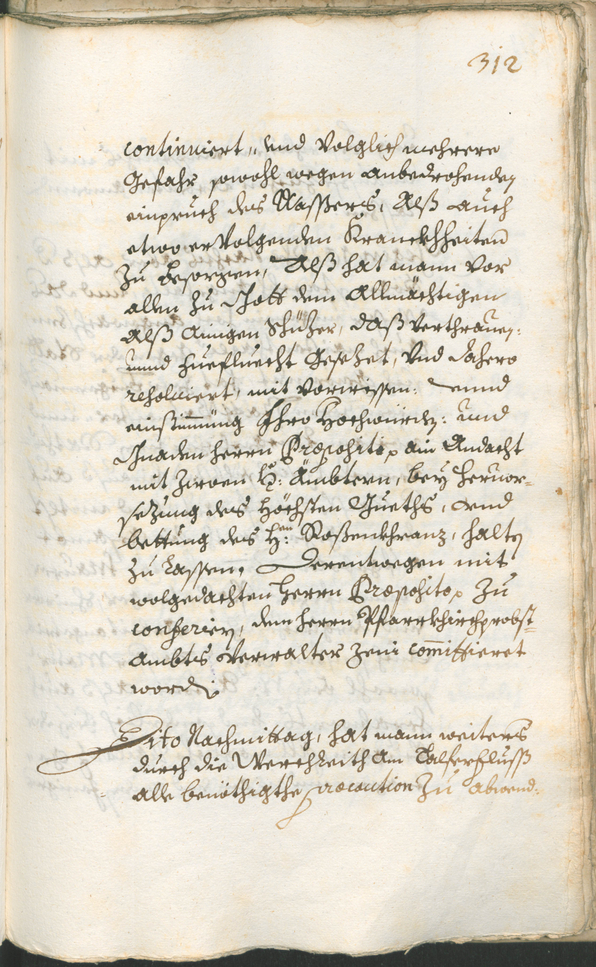 312
continuiert, und volglich mehrere
Gefahr sowohl wegen anbedrohenden
einpruch des Wassers, Alß auch
etwo ervolgenden Kranckhheiten
zu besorgen, Alß hat mann vor
allen zu Gott dem Allmächtigen
Alß Ainigen Schüzer, daß verthrauen:
unnd Zuefluecht gesezet, und dahero
resolviert, mit vorwissen: unnd
einstimmung Ihro Hochwürden: und
Gnaden Herrn Præposito, ain Andacht
mit zwoen H: Ämbtern, bey hervor-
sezung des höchsten Gueths, und
bettung des H:en Rosenkhranz, halten
zu lassen, Derentwegen mit
wolgedachten Herrn Præposito, zu
conferiern, dem Herrn Pfarrkhirchprobst-
Ambts Verwalter Zeni committieret
worden.
Dito Nachmittag, hat mann weiters
durch die Werchleith am Talferfluss
alle benöthigthe præcaution zu abwend: